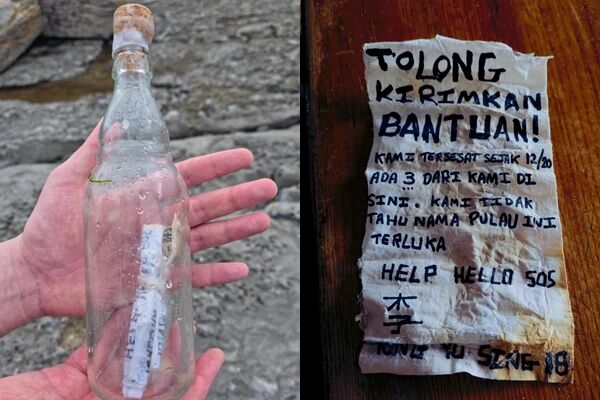 TOLONG
KIRIMKAN
BANTUAN!
KAMI TERSESAT SEJAK 12/20
ADA 3 DARI KAMI DI
SINI. KAMI TIDAK
TAHU NAMA PULAU INI
TERLUKA
HELP HELLO SOS
木
子
YU SING 18
HELP